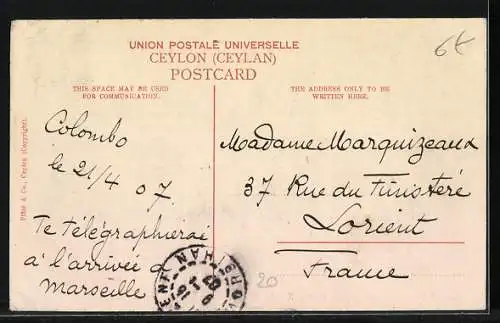 UNION POSTALE UNIVERSELLE
CEYLON (CEYLAN)
POSTCARD
THIS SPACE MAY BE USED
FOR COMMUNICATION.
THE ADDRESS ONLY TO BE
WRITTEN HERE.
Plâté & Co., Ceylon (Copyright).
6t
Colombo
le 21/4 07
Te télégraphierai
à l'arrivée à
Marseille
Madame Marquizeaux
37 Rue du Finistére
Lorient
France
20